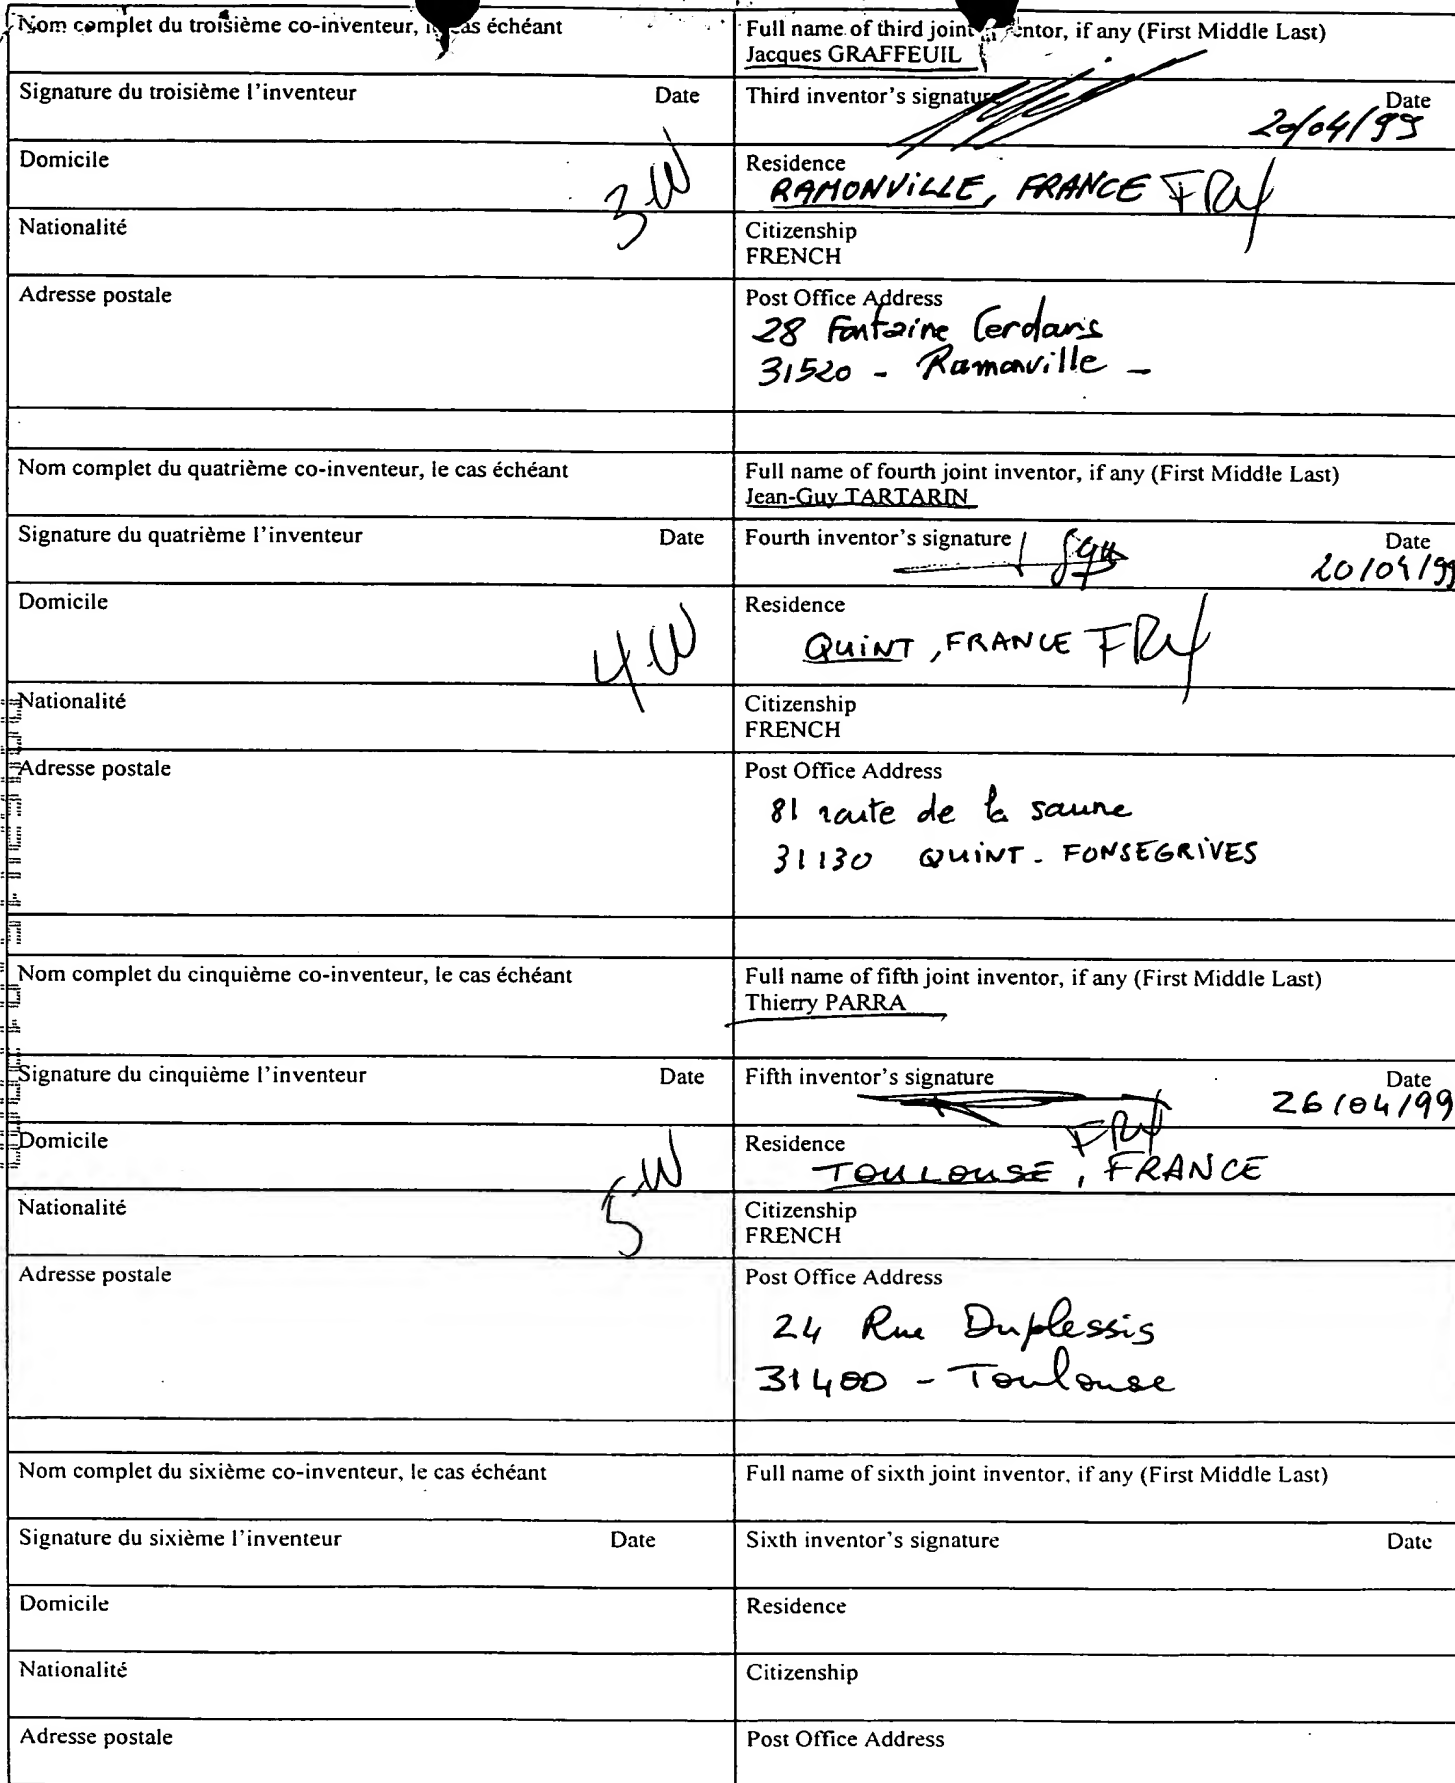 Nom complet du troisième co-inventeur, le cas échéant
Full name of third joint inventor, if any (First Middle Last)
Jacques GRAFFEUIL
Signature du troisième l'inventeur Date
Third inventor's signature Date
20/04/99
Domicile
3 W
Residence
RAMONVILLE, FRANCE FRX
Nationalité
Citizenship
FRENCH
Adresse postale
Post Office Address
28 Fontaine Cerdans
31520 - Ramonville -
Nom complet du quatrième co-inventeur, le cas échéant
Full name of fourth joint inventor, if any (First Middle Last)
Jean-Guy TARTARIN
Signature du quatrième l'inventeur Date
Fourth inventor's signature Date
20/04/99
Domicile
4 W
Residence
QUINT, FRANCE FRX
Nationalité
Citizenship
FRENCH
Adresse postale
Post Office Address
81 route de la saune
31130 QUINT - FONSEGRIVES
Nom complet du cinquième co-inventeur, le cas échéant
Full name of fifth joint inventor, if any (First Middle Last)
Thierry PARRA
Signature du cinquième l'inventeur Date
Fifth inventor's signature Date
26/04/99
Domicile
5 W
Residence FRX
TOULOUSE, FRANCE
Nationalité
Citizenship
FRENCH
Adresse postale
Post Office Address
24 Rue Duplessis
31400 - Toulouse
Nom complet du sixième co-inventeur, le cas échéant
Full name of sixth joint inventor, if any (First Middle Last)
Signature du sixième l'inventeur Date
Sixth inventor's signature Date
Domicile
Residence
Nationalité
Citizenship
Adresse postale
Post Office Address